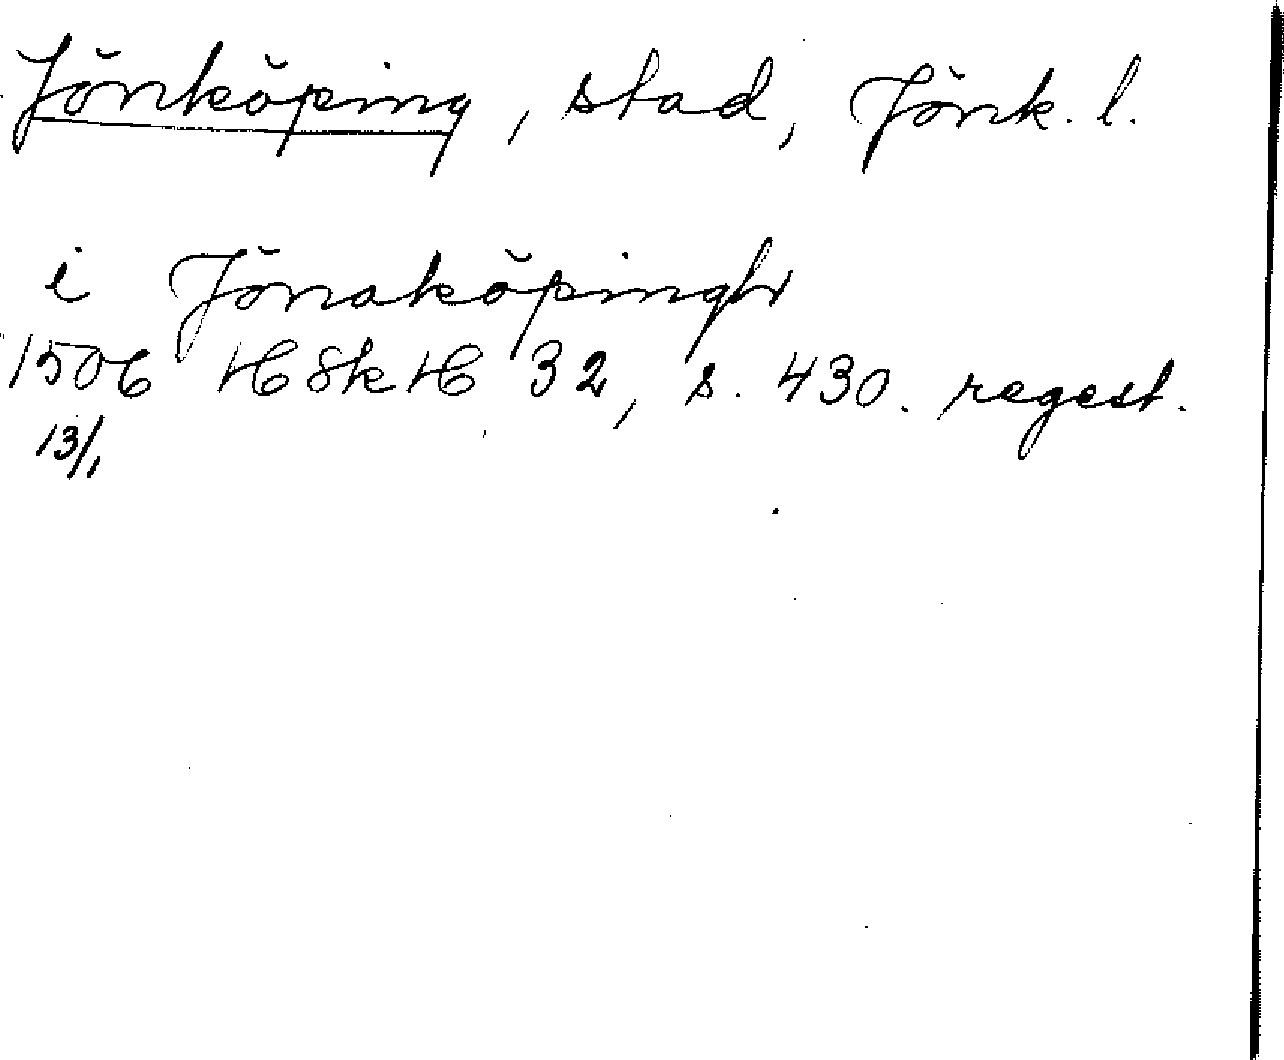 Jönköping, stad, Jönk. l.
i Jönaköpingh
1506 HSkH 32, s. 430. regest.
13/1